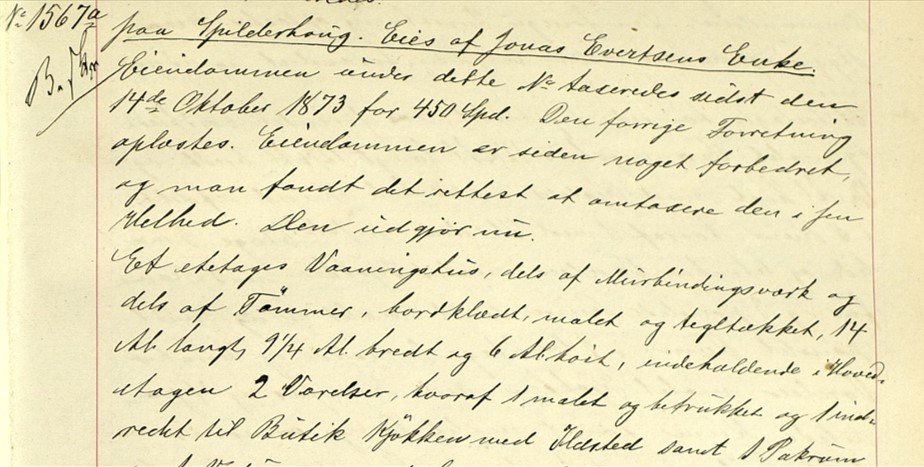 No 1567a
paa Spilderhaug. Eies af Jonas Evertsens Enke.
Eiendommen under dette No taxeredes sidst den
14de Oktober 1873 for 450 Spd. Den forrige Forretning
oplæstes. Eiendommen er siden noget forbedret,
og man fandt det rettest at omtaxere den i sin
Helhed. Den udgjør nu.
Et etetages Vaaningshus, dels af Murbindingsværk og
dels af Tömmer, bordklædt, malet og tegltækket, 14
Al. langt, 9 1/4 Al. bredt og 6 Al. høit, indeholdende i Hoved-
etagen 2 Værelser, hvoraf 1 malet og betrukket og 1 ind-
redet til Butik Kjökken med Ildsted samt 1 Pakrum